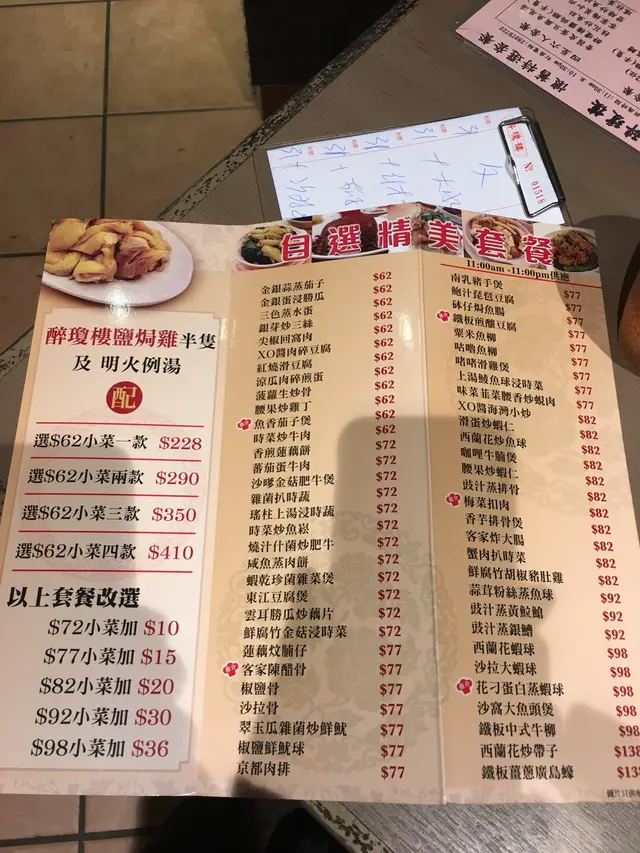 自選精美套餐
11:00am -11:00pm供應
醉瓊樓鹽焗雞半隻
及 明火例湯
配
選$62小菜一款 $228
選$62小菜兩款 $290
選$62小菜三款 $350
選$62小菜四款 $410
以上套餐改選
$72小菜加 $10
$77小菜加 $15
$82小菜加 $20
$92小菜加 $30
$98小菜加 $36
金銀蒜蒸茄子 $62
金銀蛋浸勝瓜 $62
三色蒸水蛋 $62
銀芽炒三絲 $62
尖椒回窩肉 $62
XO醬肉碎豆腐 $62
紅燒滑豆腐 $62
涼瓜肉碎煎蛋 $62
菠蘿生炒骨 $62
腰果炒雞丁 $62
魚香茄子煲 $62
時菜炒牛肉 $62
香煎蓮藕餅 $72
蕃茄蛋牛肉 $72
沙嗲金菇肥牛煲 $72
雜菌扒時蔬 $72
瑤柱上湯浸時蔬 $72
時菜炒魚崧 $72
燒汁什菌炒肥牛 $72
咸魚蒸肉餅 $72
蝦乾珍菌雜菜煲 $72
東江豆腐煲 $72
雲耳勝瓜炒藕片 $72
鮮腐竹金菇浸時菜 $72
蓮藕炆腩仔 $77
客家陳醋骨 $77
椒鹽骨 $77
沙拉骨 $77
翠玉瓜雜菌炒鮮魷 $77
椒鹽鮮魷球 $77
京都肉排 $77
南乳豬手煲 $77
鮑汁琵琶豆腐 $77
砵仔焗魚腸 $77
鐵板煎釀豆腐 $77
粟米魚柳 $77
咕嚕魚柳 $77
啫啫滑雞煲 $77
上湯鯪魚球浸時菜 $77
味菜韮菜腰香炒蜆肉 $77
XO醬海灣小炒 $82
滑蛋炒蝦仁 $82
西蘭花炒魚球 $82
咖喱牛腩煲 $82
腰果炒蝦仁 $82
豉汁蒸排骨 $82
梅菜扣肉 $82
香芋排骨煲 $82
客家炸大腸 $82
蟹肉扒時菜 $82
鮮腐竹胡椒豬肚雞 $82
蒜茸粉絲蒸魚球 $92
豉汁蒸黃鯰鱠 $92
豉汁蒸銀鱈 $92
西蘭花蝦球 $98
沙拉大蝦球 $98
花刁蛋白蒸蝦球 $98
沙窩大魚頭煲 $98
鐵板中式牛柳 $98
西蘭花炒帶子 $138
鐵板薑蔥廣島蠔
No 01518